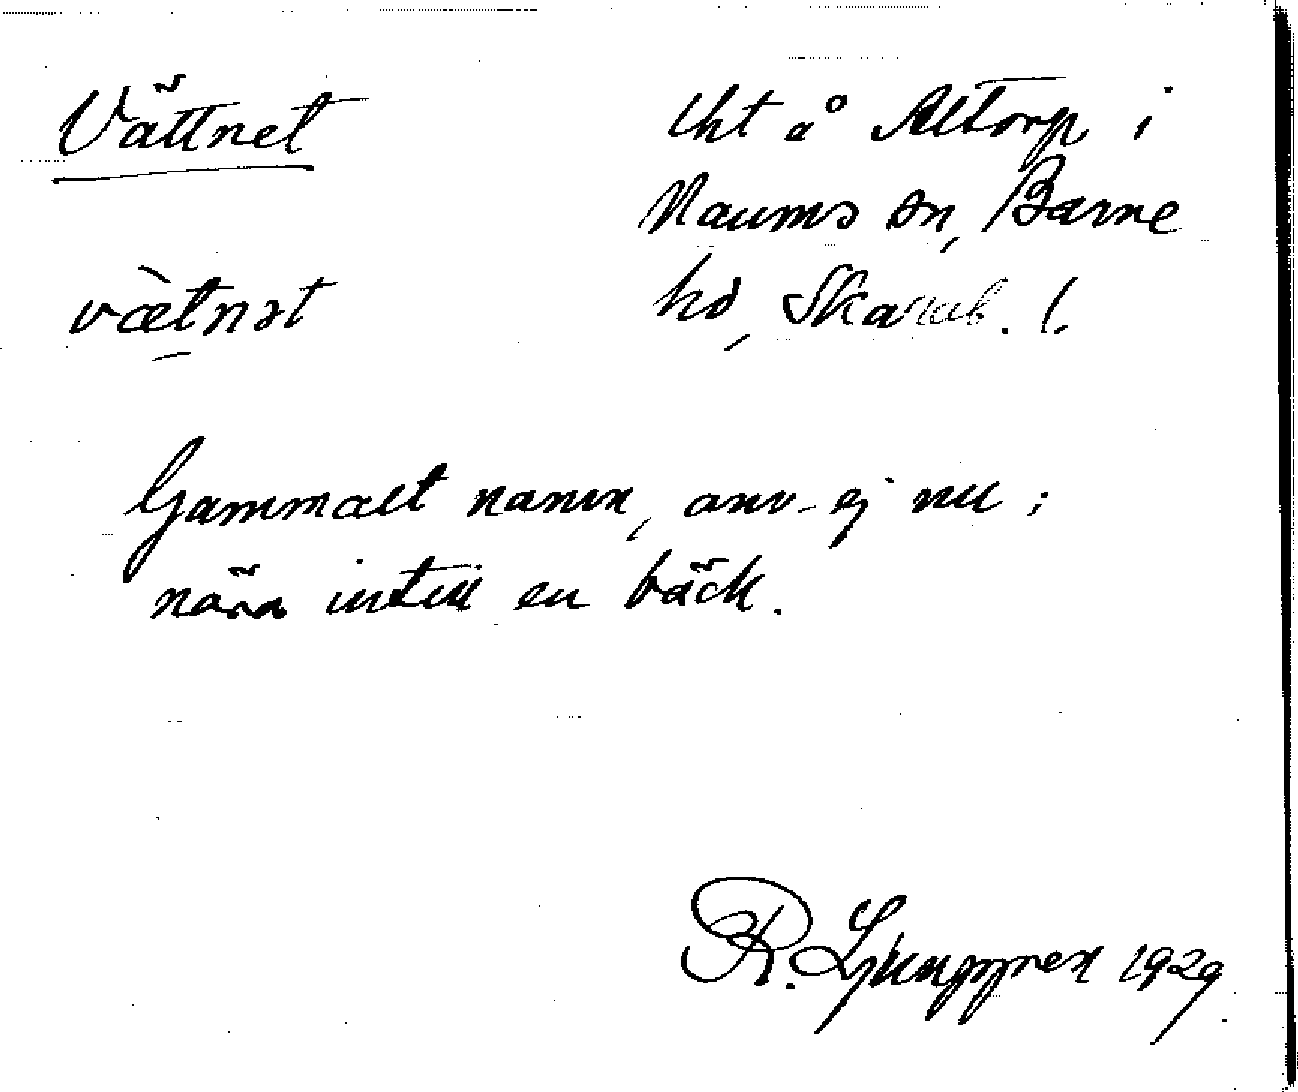 Vättnet
vætnət
lht å Altorp i
Naums sn, Barne
hd, Skarab. l.
Gammalt namn, anv. ej nu;
nära intill en bäck.
R. Ljunggren 1929